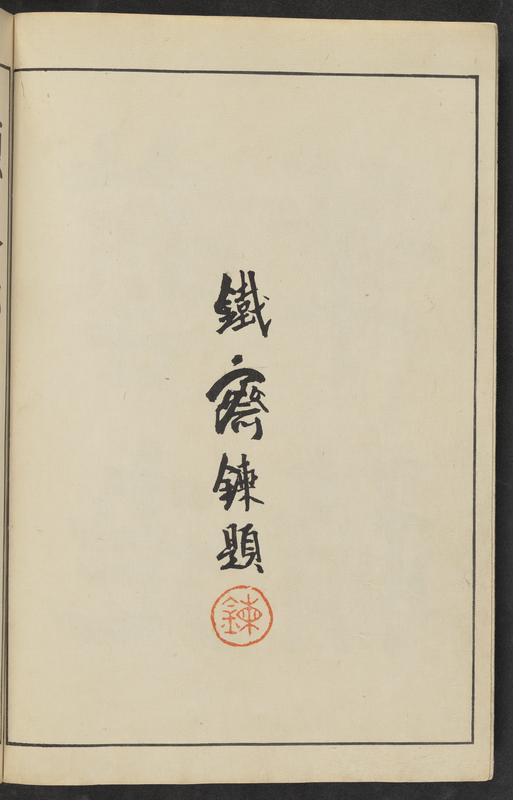 鐵齋錬題
錬